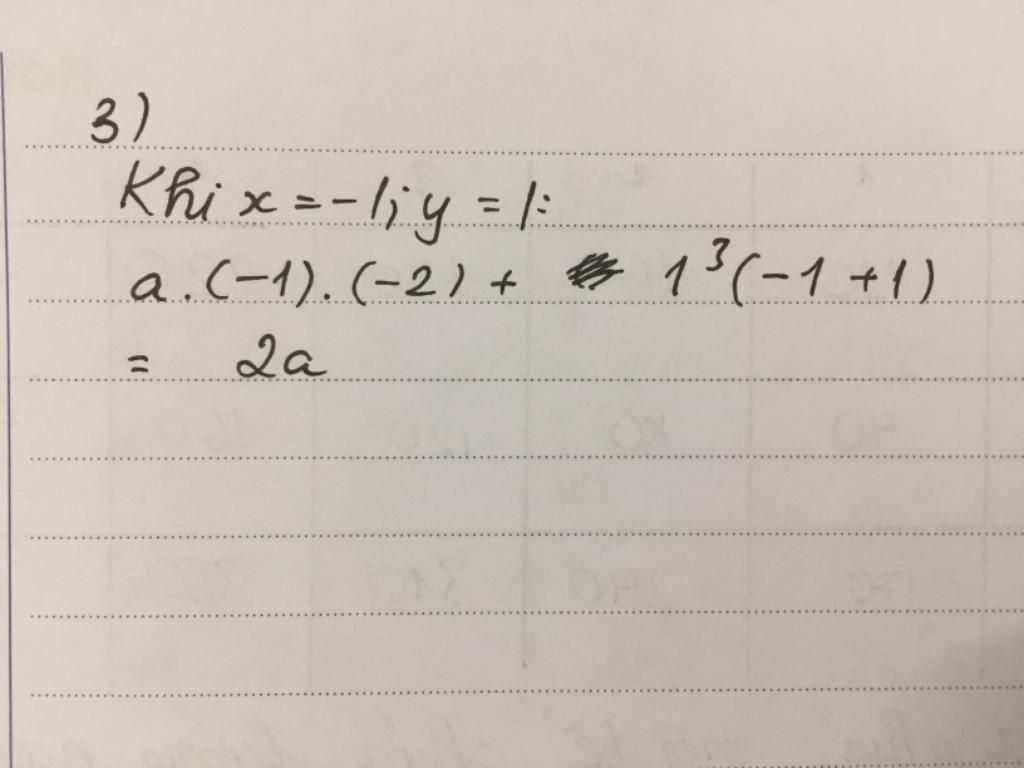 3)
Khi x = -1; y = 1:
a . (-1) . (-2) + 1³(-1 + 1)
= 2a